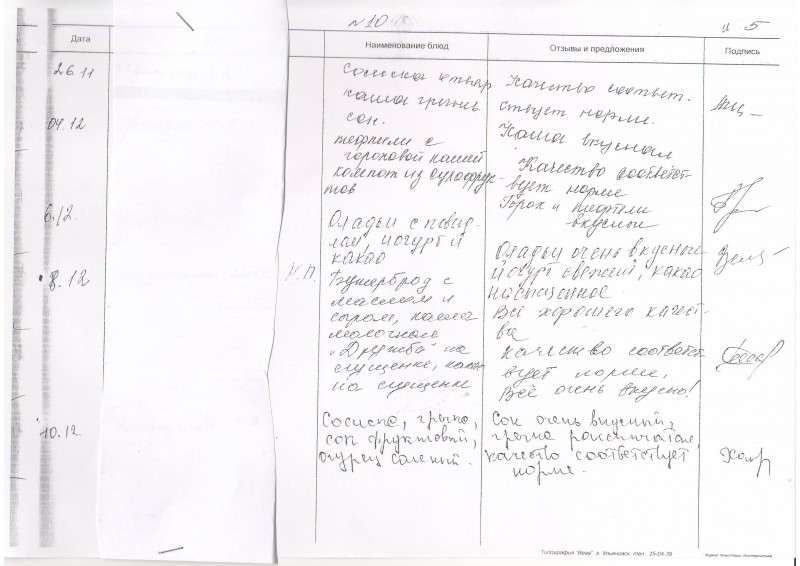 №10
5
Дата
Наименование блюд
Отзывы и предложения
Подпись
26.11
Сосиска отвар
Качество соответ-
каша гречнев.
ствует норме.
сок.
Каша вкусная
04.12
тефтели с
гороховой кашей
Качество соответст-
компот из сухофрук-
вует норме
тов
Горох и тефтели
вкусные
6.12
Оладьи с повид-
лом, йогурт и
какао
Оладьи очень вкусные
йогурт свежий, какао
насыщенное
8.12
Бутерброд с
маслом и
сыром, каша
молочная
"Дружба" на
сгущенке, какао
на сгущенке
Всё хорошего качест-
ва
качество соответст
вует норме,
Всё очень вкусно!
10.12
Сосиска, гречка,
сок фруктовый,
огурец соленый.
Сок очень вкусный,
гречка рассыпчатая,
качество соответствует
норме.
Типография "Вега". г. Ульяновск. тел. 25-04-39